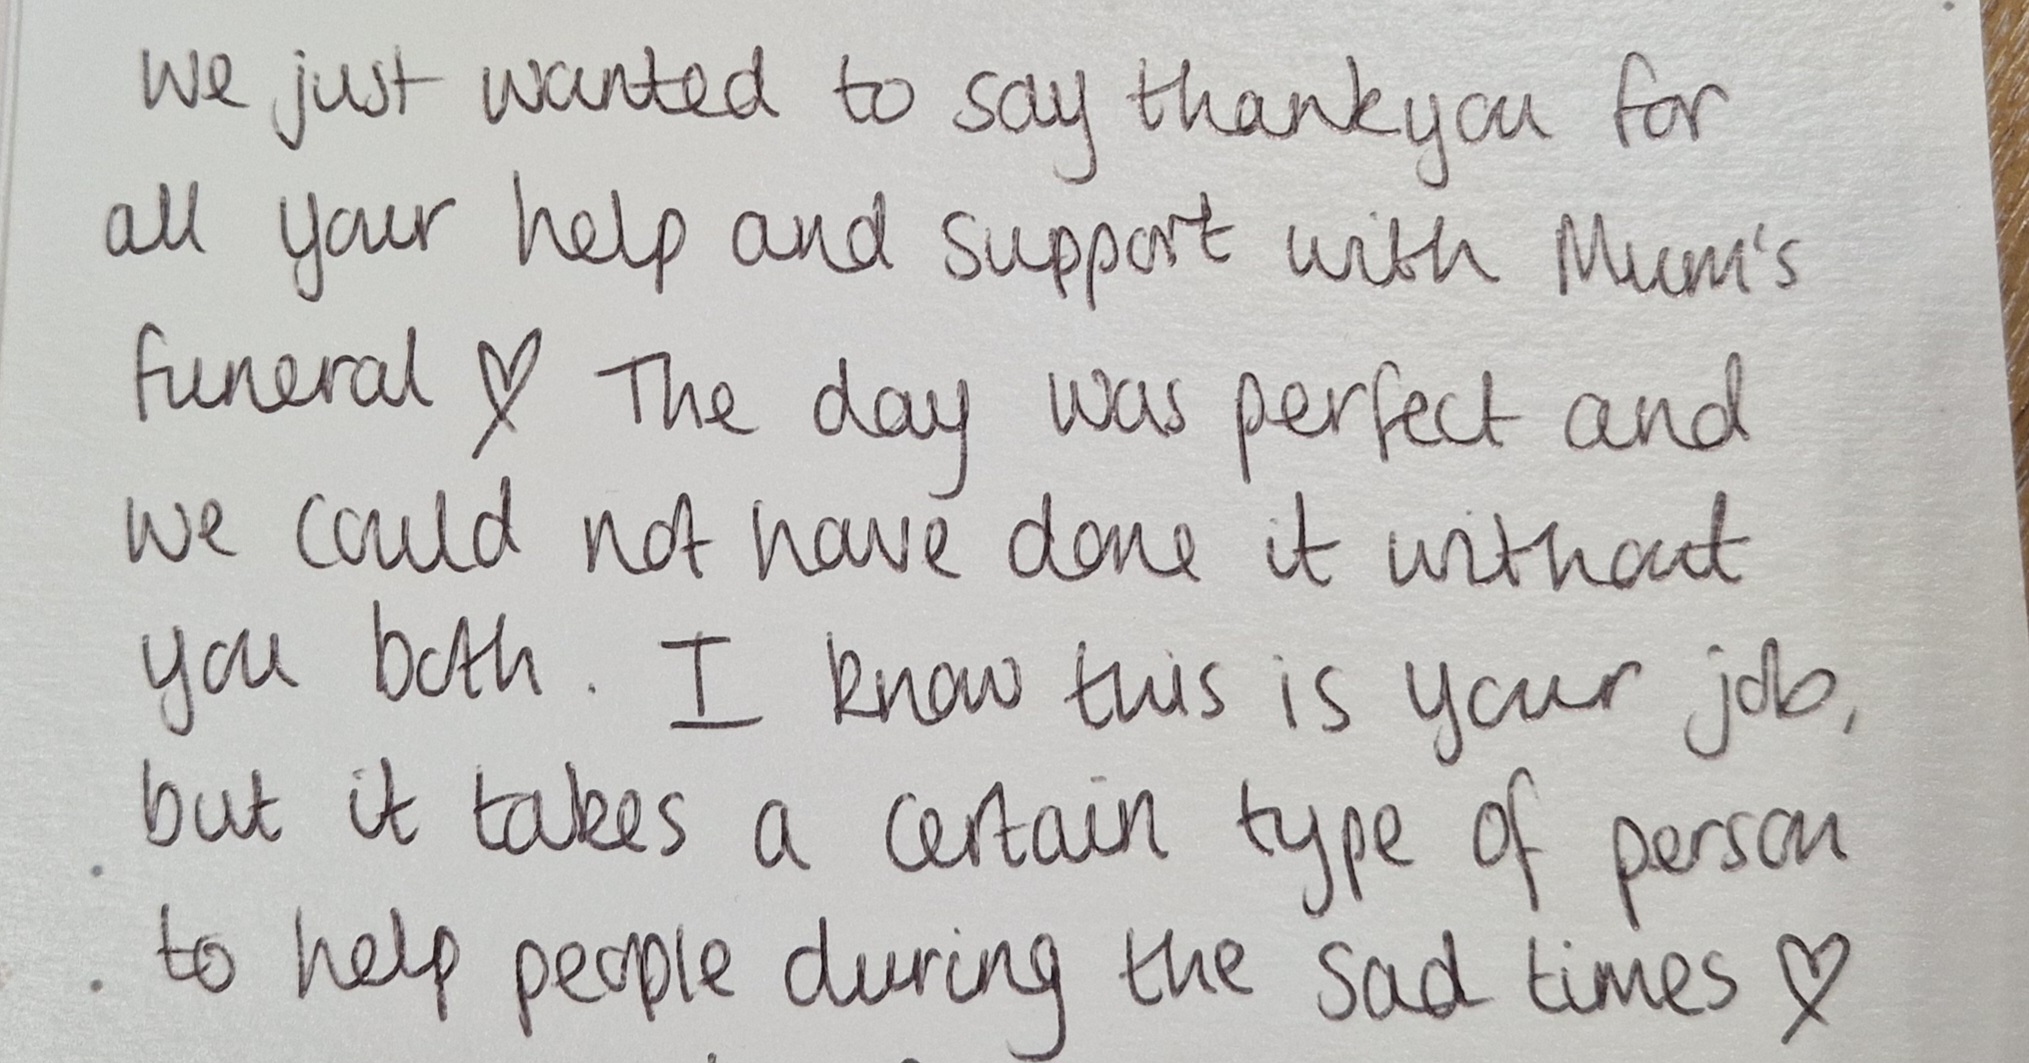 we just wanted to say thankyou for
all your help and support with Mum's
funeral ♡ The day was perfect and
we could not have done it without
you both. I know this is your job,
but it takes a certain type of person
to help people during the sad times ♡